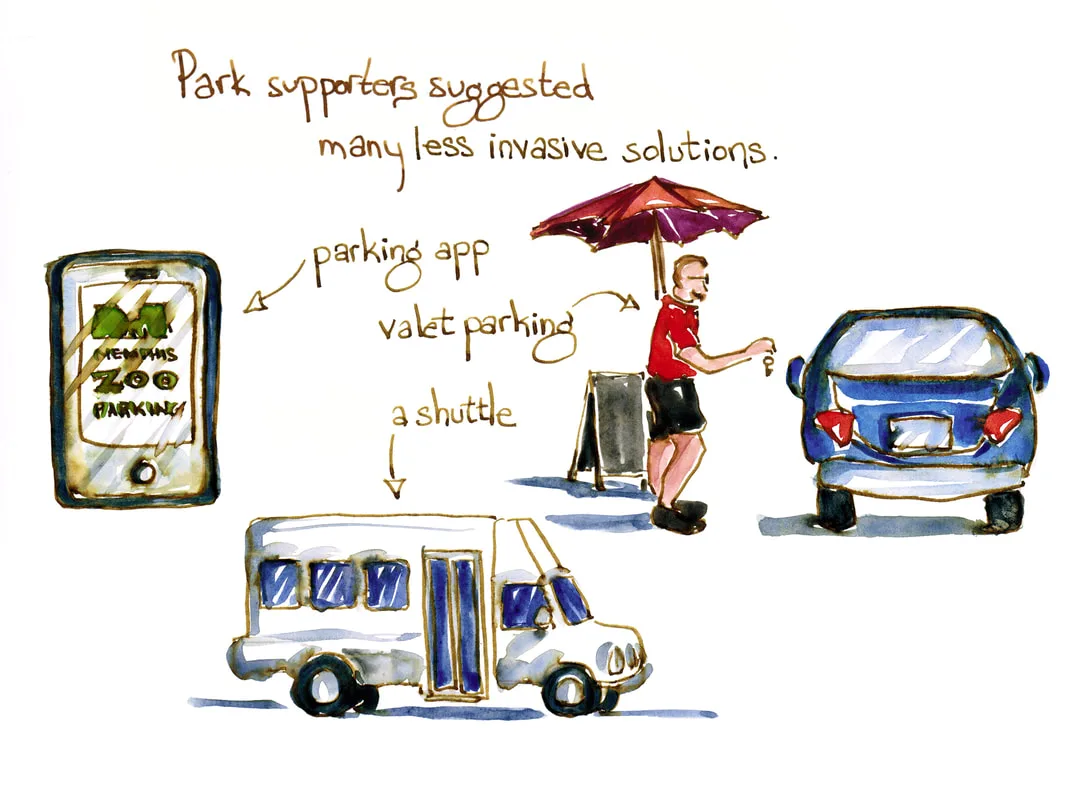 Park supporters suggested
many less invasive solutions.
parking app
valet parking
a shuttle
MEMPHIS
ZOO
PARKING